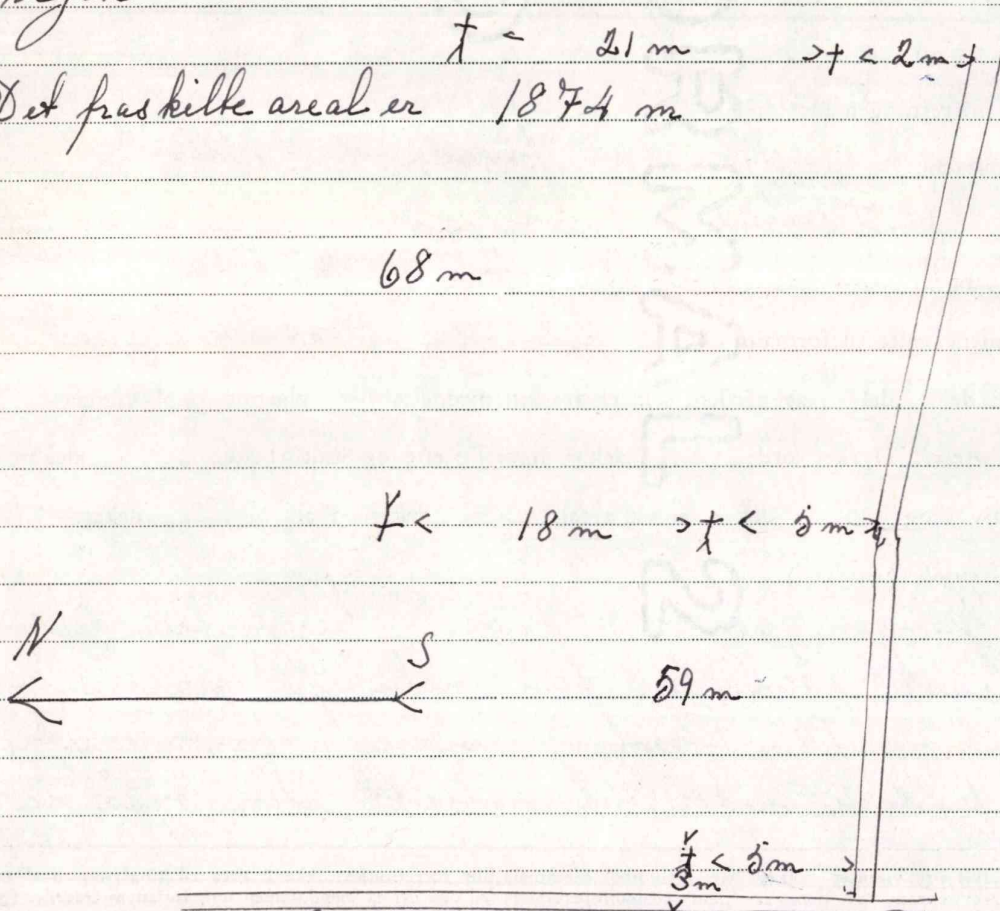 21 m > < 2 m
Det fraskilte areal er 1874 m
68 m
< 18 m > < 5 m >
N
S
59 m
< 5 m >
3 m